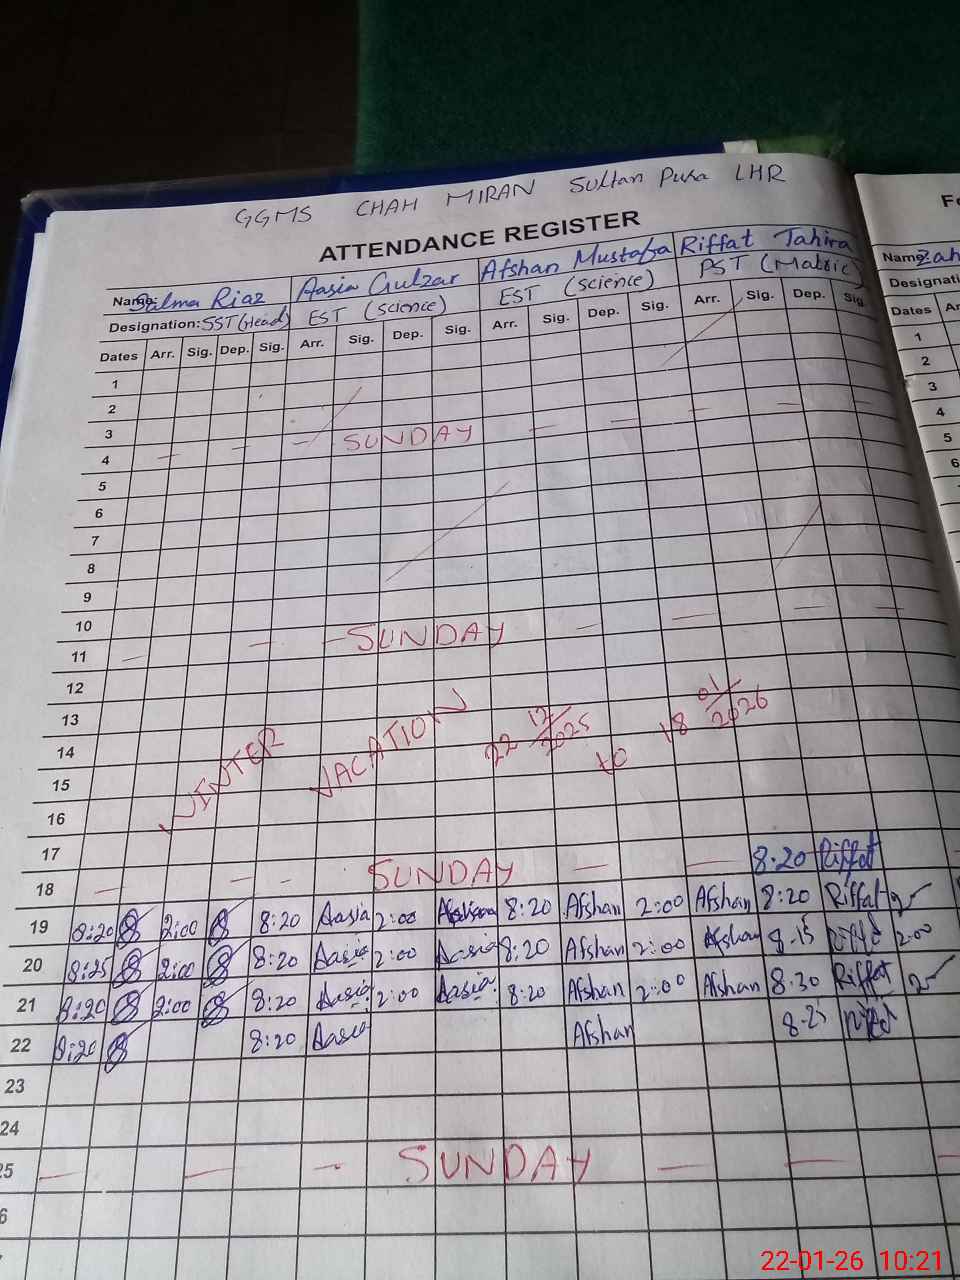 GGMS CHAH MIRAN Sultan Pura LHR
ATTENDANCE REGISTER
Name: Salma Riaz Aasia Gulzar Afshan Mustafa Riffat Tahira
Designation: SST (Head) EST (Science) EST (Science) PST (Matric)
Dates Arr. Sig. Dep. Sig. Arr. Sig. Dep. Sig. Arr. Sig. Dep. Sig. Arr. Sig. Dep. Sig.
1
2
3
4 SUNDAY
5
6
7
8
9
10
11 SUNDAY
12
13
14 WINTER VACATION 22 12/2025 to 18 01/2026
15
16
17
18 SUNDAY 8.20 Riffat
19 8:20 2:00 8:20 Aasia 2:00 8:20 Afshan 2:00 Afshan 8:20 Riffat
20 8:25 2:00 8:20 Aasia 2:00 Aasia 8:20 Afshan 2:00 Afshan 8.15 2.00
21 8:20 2:00 8:20 Aasia 2:00 Aasia 8:20 Afshan 2:00 Afshan 8.30 Riffat
22 8:20 8:20 Aasia Afshan
23
24
25 SUNDAY
Name:
Designati
Dates
1
2
3
4
5
6
22-01-26 10:21